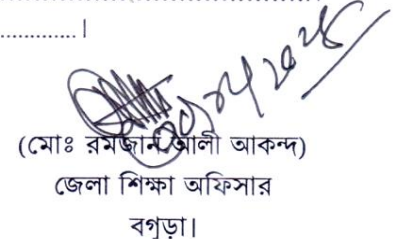 ............. ।
(মোঃ রমজান আলী আকন্দ)
জেলা শিক্ষা অফিসার
বগুড়া।